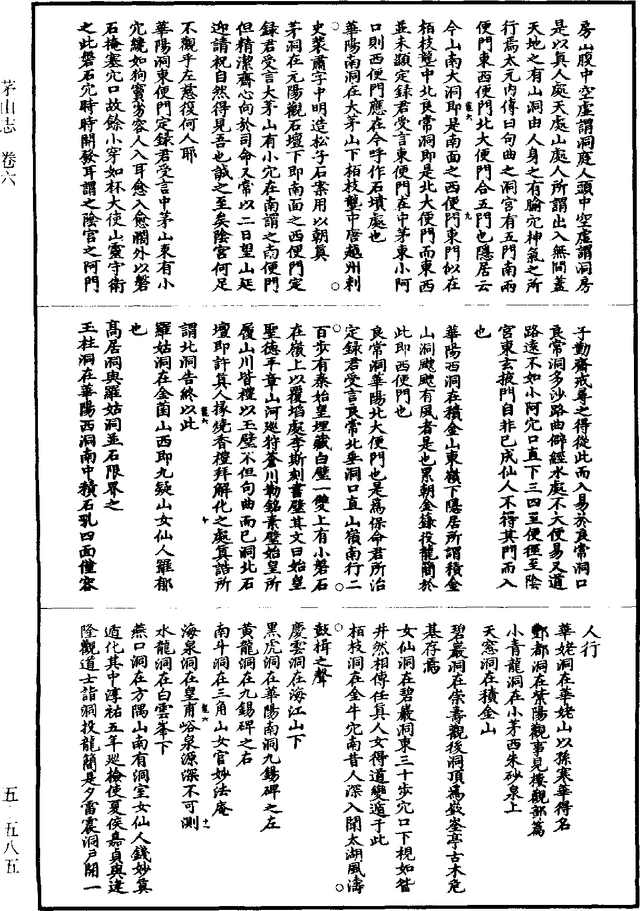 房山腹中空虛謂洞庭人頭中空虛謂洞房
是以真人處天處山處人所謂出入無間蓋
天地之有山洞由人身之有腧穴神氣之所
行焉太元內傳曰句曲之洞宮有五門南兩
便門東西便門北大便門合五門也隱居云
今山南大洞即是南面之西便門東門似在
栢枝壟中北良常洞即是北大便門而東西
並未顯定錄君受言東便門在中茅東小阿
口則西便門應在今呼作石墳處也
華陽南洞在大茅山下栢枝壟中唐越州刺
史裴肅字中明造松子石案用以朝真
茅洞在元陽觀石壇下即南面之西便門定
錄君受言大茅山有小穴在南謂之南便門
但精潔齋心向於司命又常以二日望山延
迎請祝自然得見吾也誠之至矣陰宮何足
不觀乎左慈復何人耶
華陽洞東便門定錄君受言中茅山東有小
穴纔如狗竇劣容人入耳愈入愈闊外以磐
石掩塞穴口故餘小穿如杯大使山靈守衛
之此磐石穴時時開發耳謂之陰宮之阿門
子勤齋戒尋之得從此而入易於良常洞口
良常洞多沙路曲僻經水處不大便易又道
路遠不如小阿穴口直下三四里便徑至陰
宮東玄掖門自非已成仙人不得其門而入
也
華陽西洞在積金山東嶺下隱居所謂積金
山洞颼颼有風者是也累朝金籙投龍簡於
此即西便門也
良常洞華陽北大便門也是為保命君所治
定錄君受言良常北垂洞口直山嶺南行二
百步有秦始皇埋藏白璧一雙上有小磐石
在嶺上以覆埳處李斯刻書壁其文曰始皇
聖德平章山河巡狩蒼川勒銘素壁始皇所
履山川皆禮以玉璧不但句曲而已洞北石
壇即許真人掾燒香禮拜解化之處真誥所
謂北洞告終以此
羅姑洞在金菌山西即九疑山女仙人羅郁
也
高居洞與羅姑洞並石限界之
玉柱洞在華陽西洞南中積石乳四面僅容
人行
華姥洞在華姥山以孫寒華得名
酆都洞在紫陽觀事見樓觀部篇
小青龍洞在小茅西朱砂泉上
天窓洞在積金山
碧巖洞在崇壽觀後洞頂為巖峯亭古木危
基存焉
女仙洞在碧巖洞東三十步穴口下視如眢
井然相傳任真人女得道變遁于此
栢枝洞在金牛穴南昔人深入聞太湖風濤
鼓楫之聲
慶雲洞在海江山下
黑虎洞在華陽南洞九錫碑之左
黃龍洞在九錫碑之右
南斗洞在三角山女官妙法庵
海泉洞在皇甫峪泉源深不可測
水龍洞在白雲峯下
無口洞在方隅山南有洞室女仙人錢妙真
遁化其中淳祐五年巡檢使夏侯嘉貞與達
隆觀道士詣洞投龍簡是夕雷震洞戶開一
茅山志 卷六
五—五八五